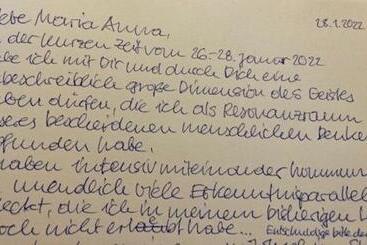 28.1.2022
ebe Maria Anna,
der kurzen Zeit vom 26-28. Januar 2022
be ich mit Dir und durch Dich eine
beschreiblich große Dimension des Geistes
ben dürfen, die ich als Resonanzraum
seres bescheidenen menschlichen Denken
funden habe.
haben intensiv miteinander kommun
unendlich viele Erkenntnisparallel
eckt, die ich in meinem bisherigen
och nicht erlebt habe... Entschuldige bitte den